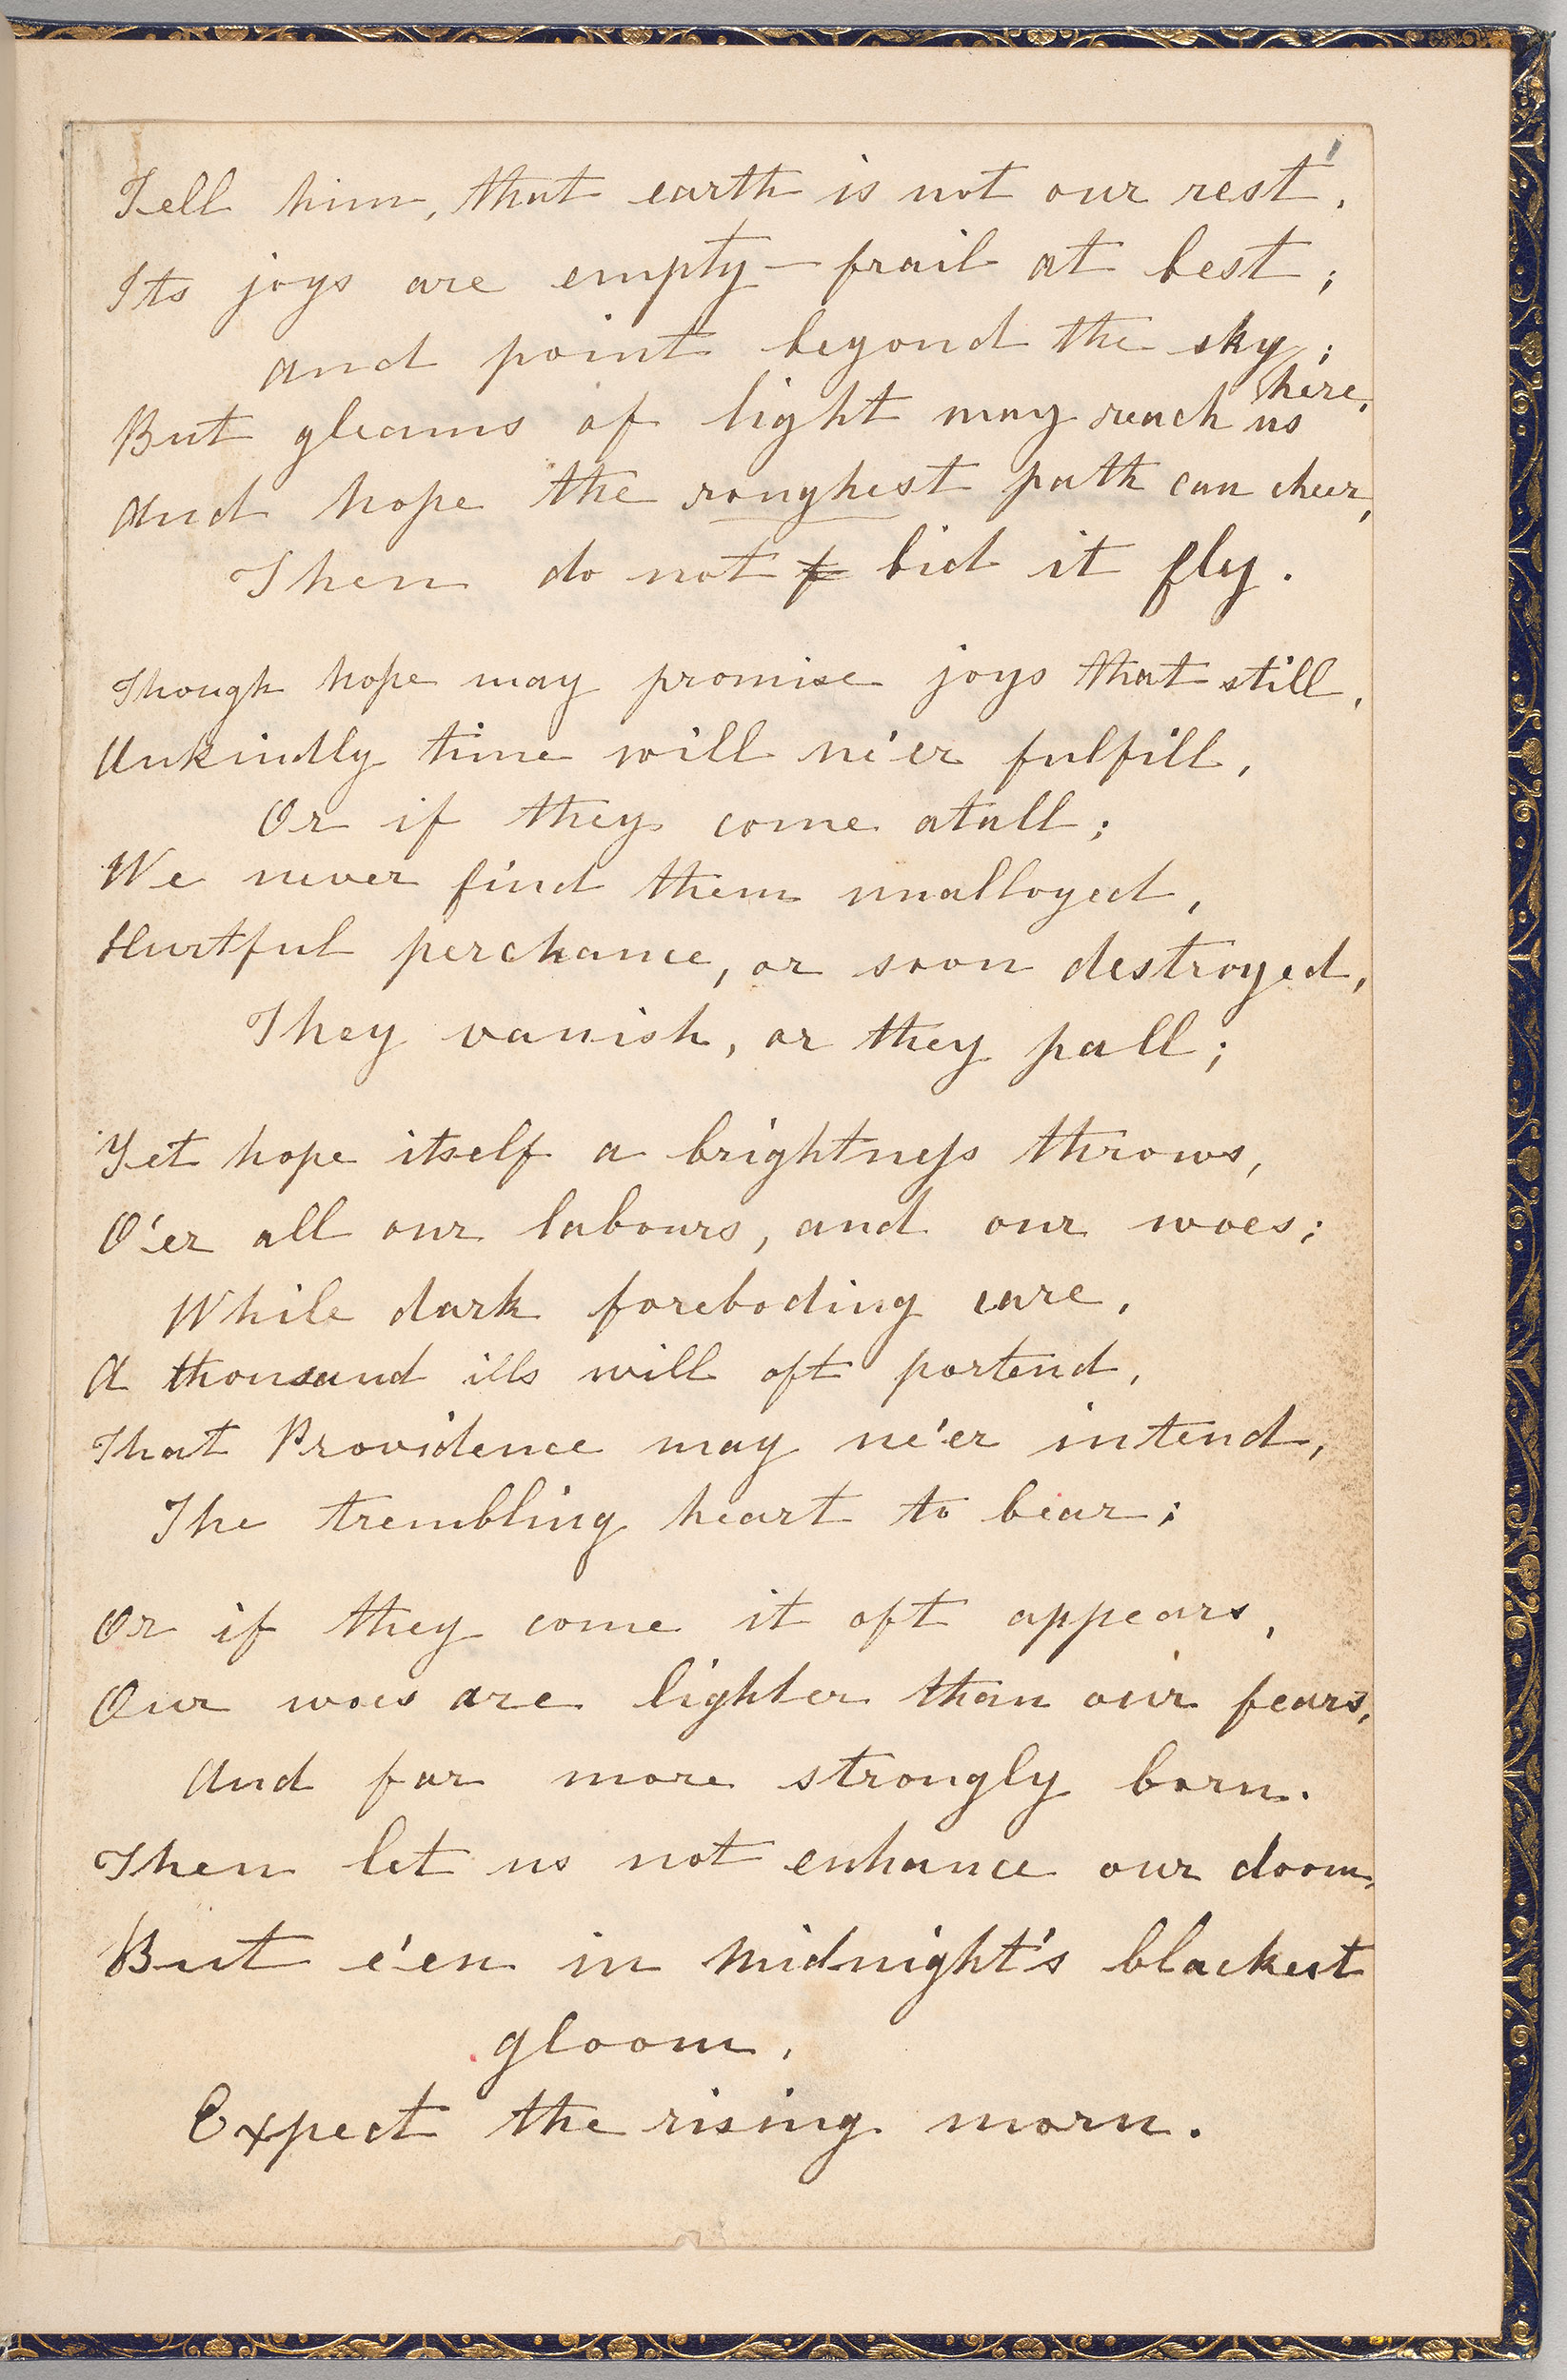 Tell him, that earth is not our rest,
Its joys are empty – frail at best;
and point beyond the sky;
But gleams of light may reach us here,
And hope the roughest path can cheer,
Then do not f bid it fly.
Though hope may promise joys that still,
Unkindly time will ne'er fulfill,
Or if they come atall;
We never find them unalloyed,
Hurtful perchance, or soon destroyed,
They vanish, or they pall;
Yet hope itself a brightneſs throws,
O'er all our labours, and our woes;
While dark foreboding care,
A thousand ills will oft portend,
That Providence may ne'er intend,
The trembling heart to bear;
Or if they come it oft appears,
Our woes are lighter than our fears,
And far more strongly born.
Then let us not enhance our doom,
But e'en in midnight's blackest
gloom,
Expect the rising morn.